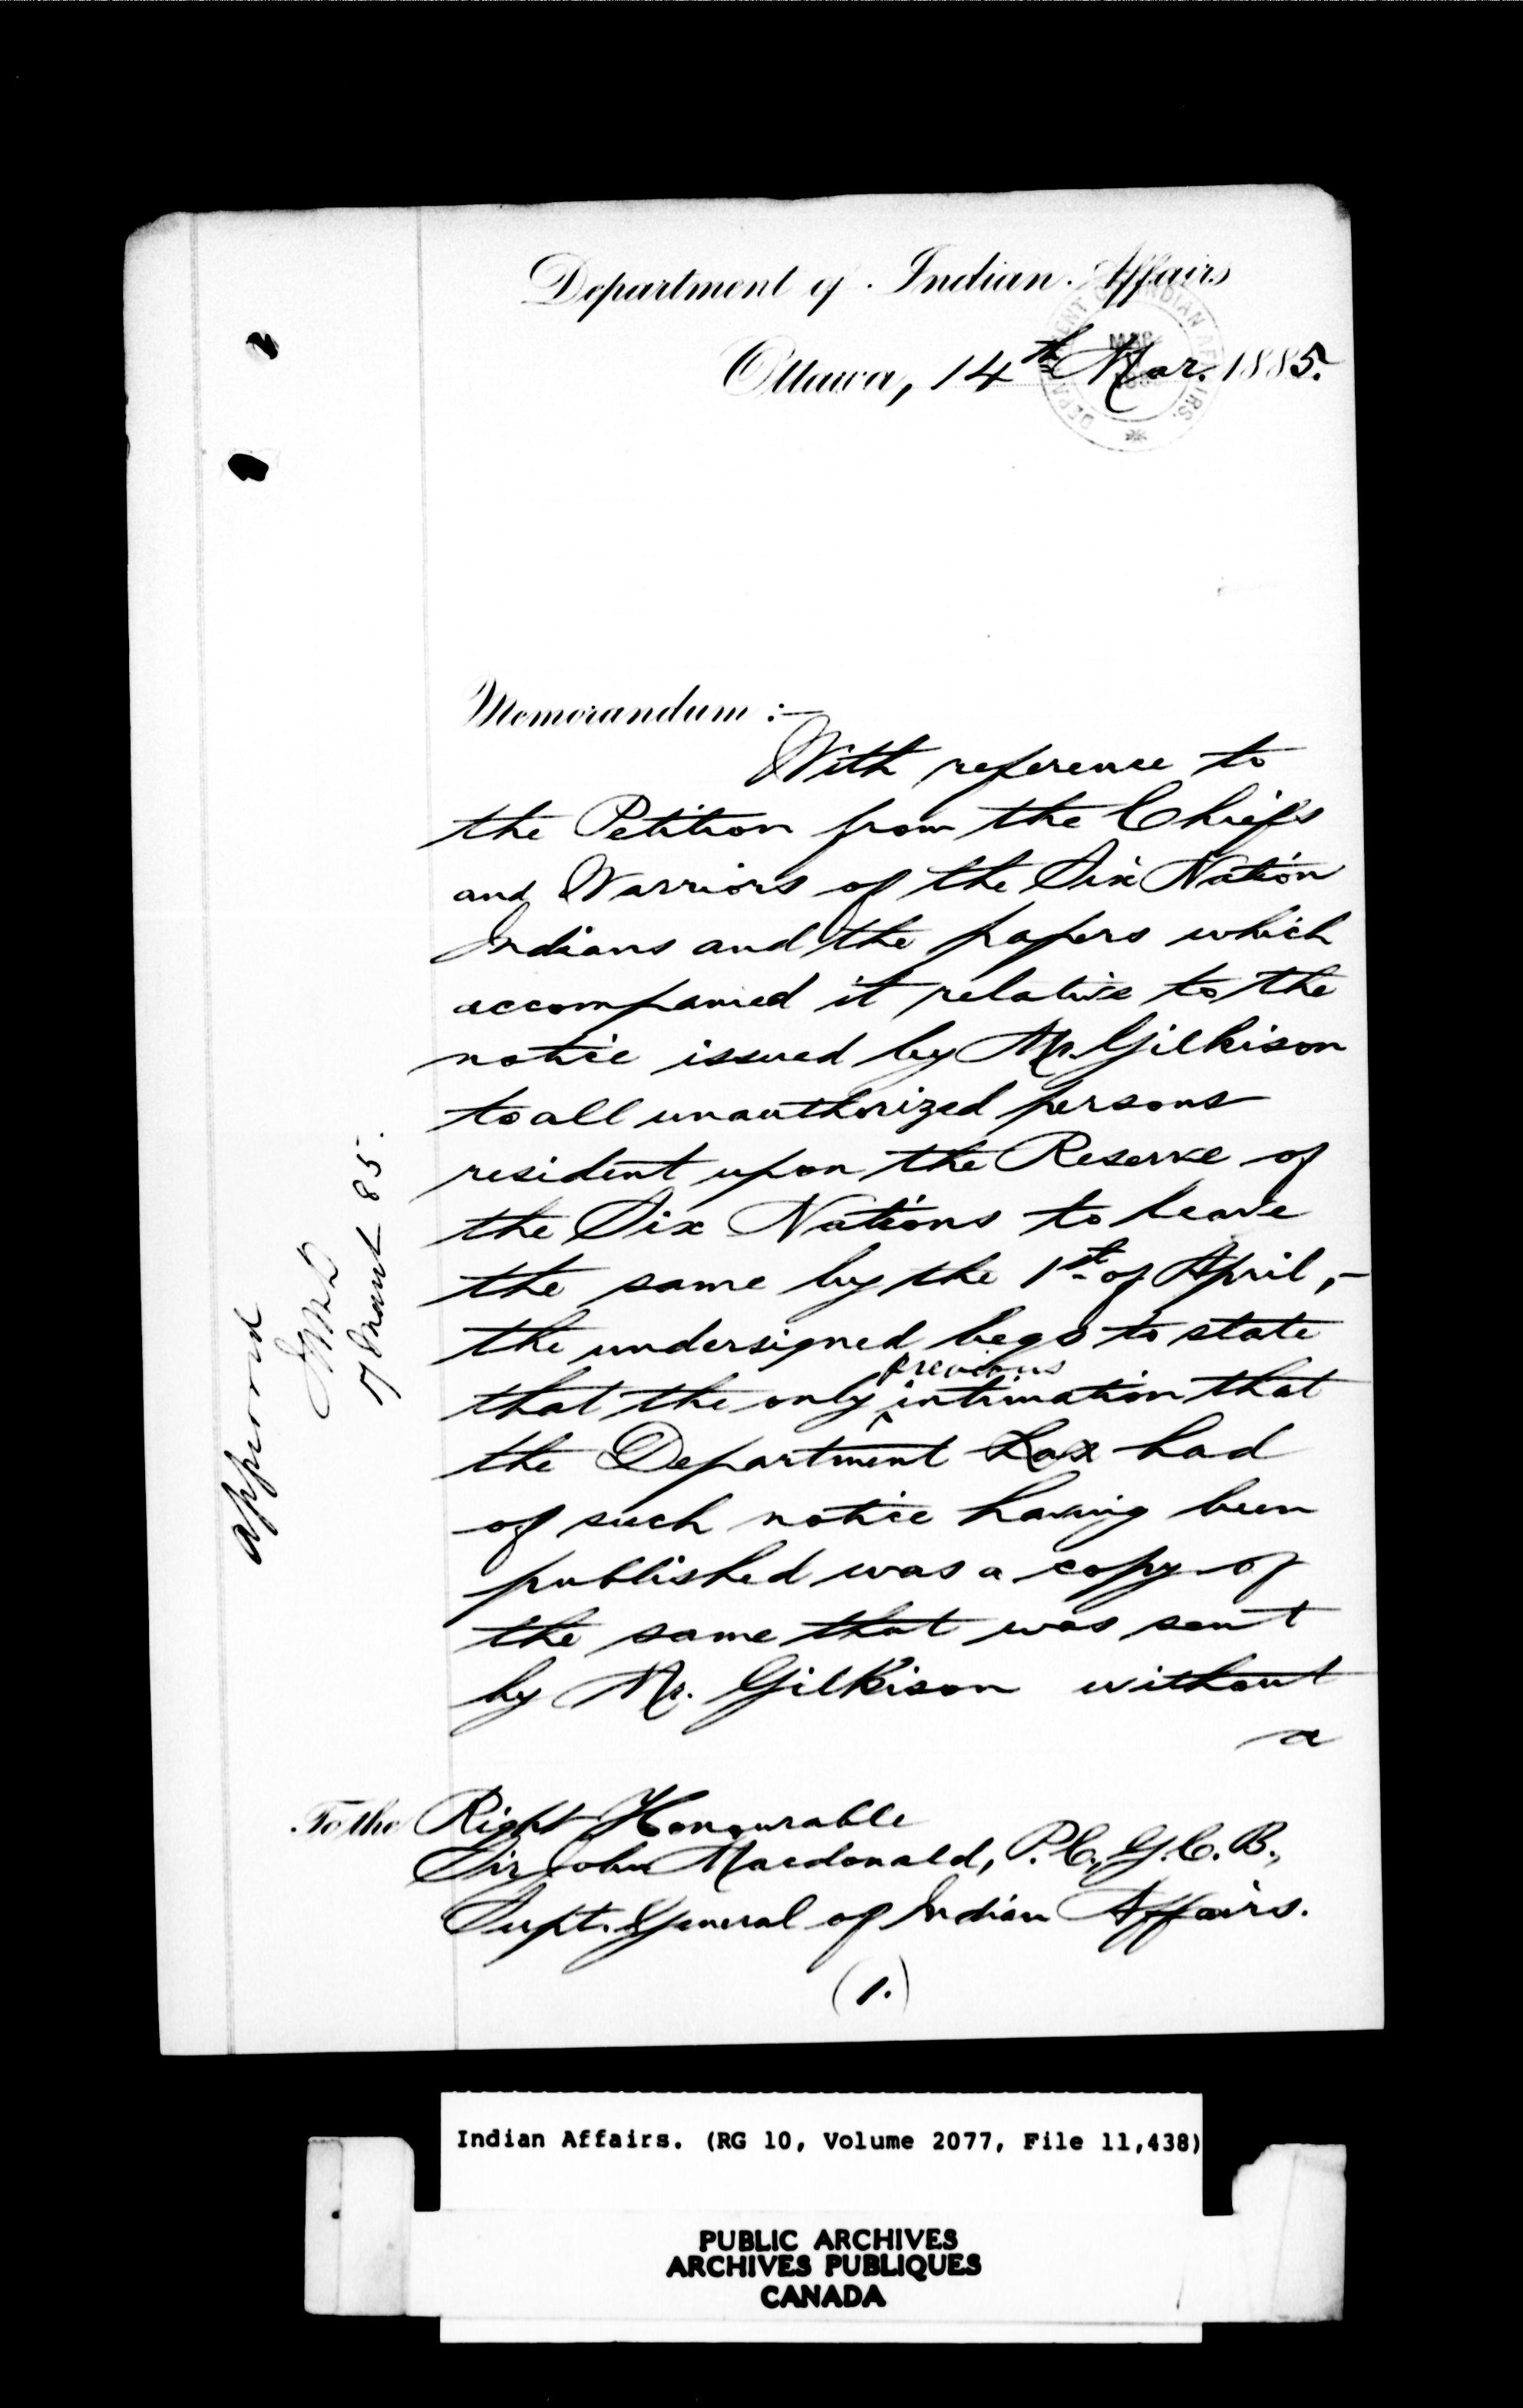 Department of Indian Affairs
DEPARTMENT OF INDIAN AFFAIRS.
Ottawa, 14th Mar. 1885.
Memorandum :-
With reference to
the Petition from the Chiefs
and Warriors of the Six Nation
Indians and the papers which
accompanied it relative to the
notice issued by Mr. Gilkison
to all unauthorized persons
resident upon the Reserve of
the Six Nations to leave
the same by the 1st of April,-
the undersigned begs to state
previous
that the only ^ intimation that
the Department has had
of such notice having been
published was a copy of
the same that was sent
by Mr. Gilkison without
a
To the Right Honourable
Sir John Macdonald, P.C., G.C.B.,
Supt. General of Indian Affairs.
(1.)
approved
17 March 85.
Indian Affairs. (RG 10, Volume 2077, File 11,438)
PUBLIC ARCHIVES
ARCHIVES PUBLIQUES
CANADA